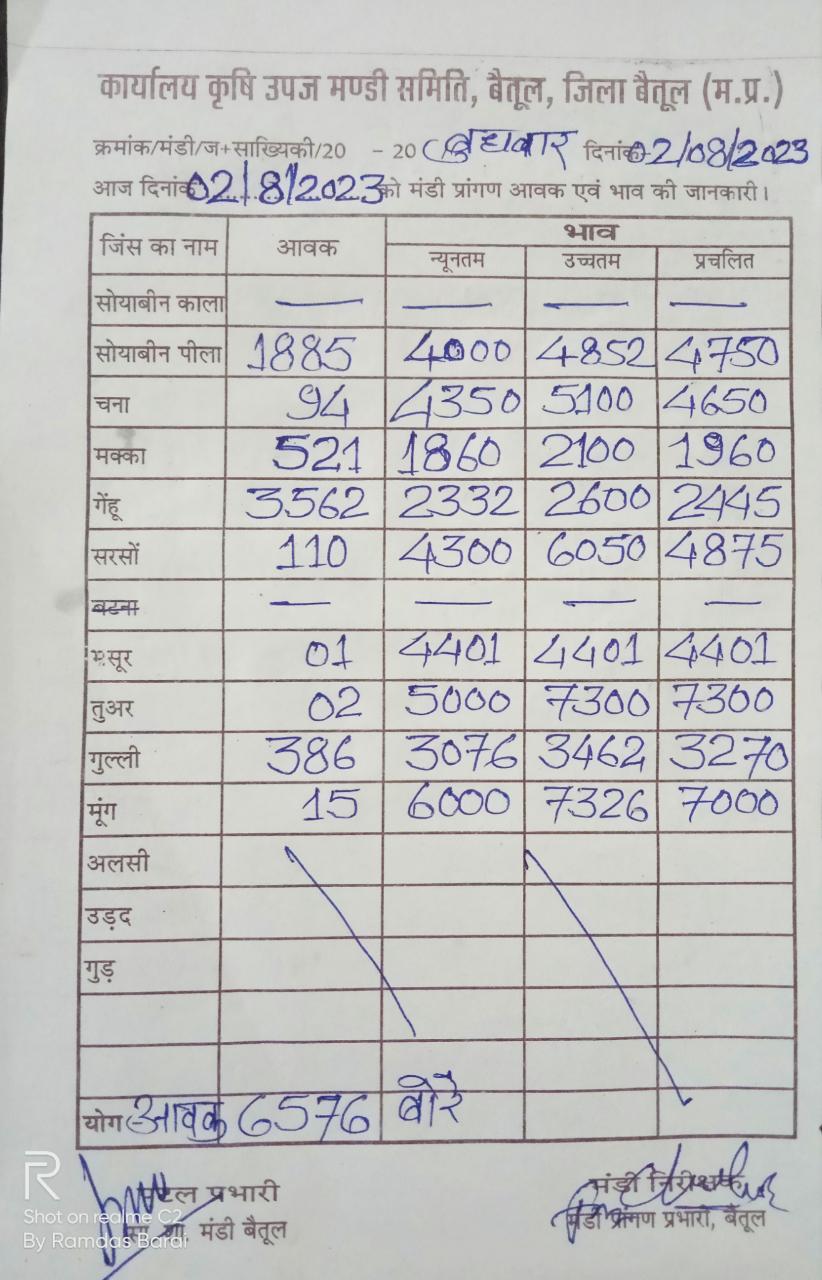 कार्यालय कृषि उपज मण्डी समिति, बैतूल, जिला बैतूल (म.प्र.)
क्रमांक/मंडी/ज+साख्यिकी/20 - 20 (बुधवार दिनांक 02/08/2023
आज दिनांक 02/8/2023 को मंडी प्रांगण आवक एवं भाव की जानकारी।
जिंस का नाम आवक भाव
न्यूनतम उच्चतम प्रचलित
सोयाबीन काला — — — —
सोयाबीन पीला 1885 4000 4852 4750
चना 94 4350 5100 4650
मक्का 521 1860 2100 1960
गेंहू 3562 2332 2600 2445
सरसों 110 4300 6050 4875
बटना — — — —
मसूर 01 4401 4401 4401
तुअर 02 5000 7300 7300
गुल्ली 386 3076 3462 3270
मूंग 15 6000 7326 7000
अलसी
उड़द
गुड़
योग आवक 6576 बोरे
प्रभारी मंडी निरीक्षक
मंडी बैतूल मंडी प्रांगण प्रभारी, बैतूल
R
Shot on realme C2
By Ramdas Barai